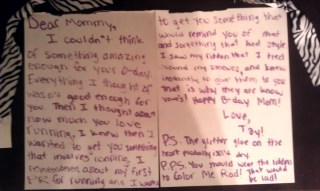 Dear Mommy,
I couldn't think
of something amazing
enough for your b-day.
Everything I thought of
wasn't good enough for
you. Then I thought about
how much you love
running. I knew then I
wanted to get you something
that involves running. I
remembered about my first
5K for running and I want
to get you something that
would remind you of that
and something that had style
I saw my ribbon that I tied
round my shoes, and knew
instantly to give them to you
that is why they are know
yours! Happy B-day Mom!
Love,
Tay!
P.S. The glitter glue on the
P.P.S. You should wear the ribbons
to Color Me Rad! That would
be rad!